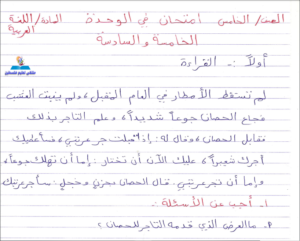 الصف/ الخامس امتحان في الوحدة المادة/ اللغة العربية
الخامسة والسادسة
أولاً :- القراءة
لم تسقط الأمطار في العام المقبل، ولم ينبت العشب
فجاع الحصان جوعاً شديداً، وعلم التاجر بذلك
فقابل الحصان، وقال له: إذا قبلت جر عربتي، فسأعطيك
أجرك شعيراً، عليك الآن أن تختار: إما أن تهلك جوعاً،
وإما أن تجر عربتي. قال الحصان بحزن وخجل: سأجر عربتك
١- أجب عن الأسئلة:-
ما العرض الذي قدمه التاجر للحصان؟